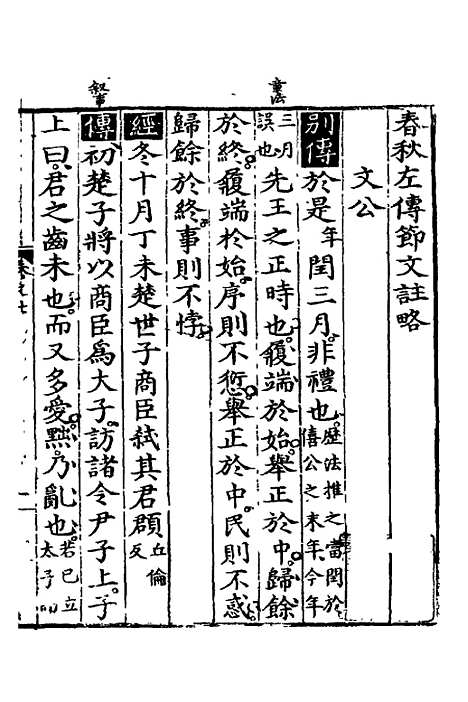 春秋左傳節文註略
文公
別傳於是年閏三月非禮也歷法推之當閏於僖公之末年今年
三月誤也先王之正時也履端於始舉正於中歸餘
於終履端於始序則不愆舉正於中民則不惑
歸餘於終事則不悖
經冬十月丁未楚世子商臣弒其君頵丘倫反
傳初楚子將以商臣爲大子訪諸令尹子上子
上曰君之齒未也而又多愛黜乃亂也若已立太子而
章法
叙事